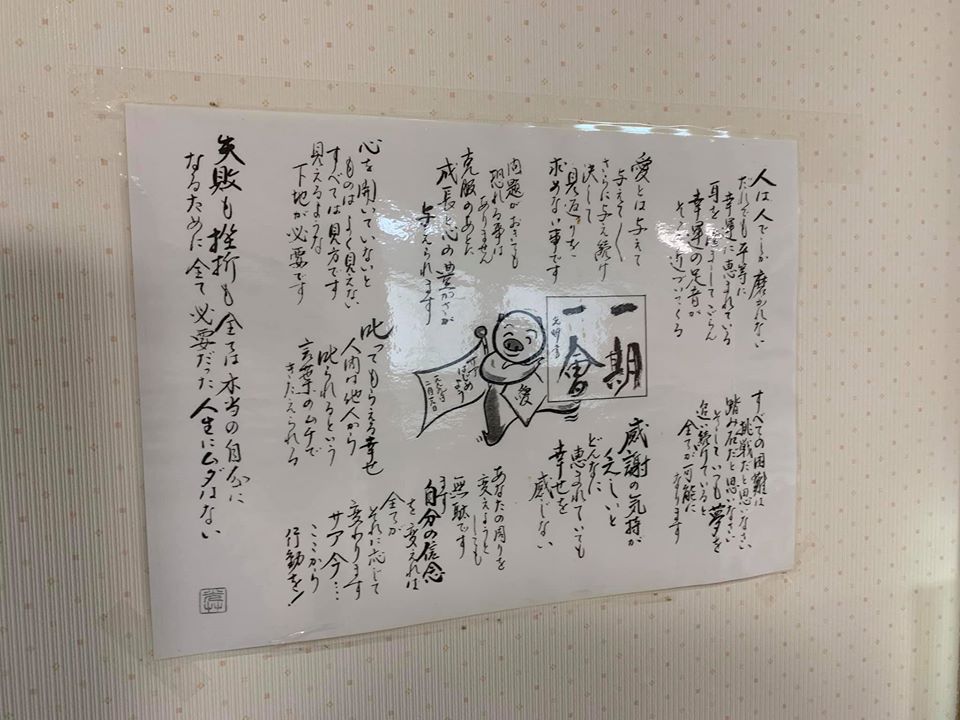 人は人でしか磨かれない
だれでも平等に
幸運に恵まれている
耳をすましてごらん
幸運の足音が
そっと近づいてくる
愛とは与えて
与えて〱
さらに与え続け
決して
見返りを
求めない事です
問題がおきても
恐れる事は
ありません
克服のあと
成長と心の豊かさが
与えられます
心を開いていないと
ものはよく見えない
すべては見方です
見えるような
下地が必要です
一期
一會
愛
はじめよう
すべての困難は
挑戦だと思いなさい
踏み石だと思いなさい
そしていつも夢を
追い続けていると
全てが可能に
なります
感謝の気持が
乏しいと
どんなに
恵まれていても
幸せを
感じない
あなたの周りを
変えようと
しても
無駄です
自分の信念
を変えれば
全てが
それに応じて
変わります
サア今…
ここから
行動を!
叱ってもらえる幸せ
人間は他人から
叱られるという
言葉のムチで
きたえられる
失敗も挫折も全ては本当の自分に
なるために全て必要だった人生にムダはない